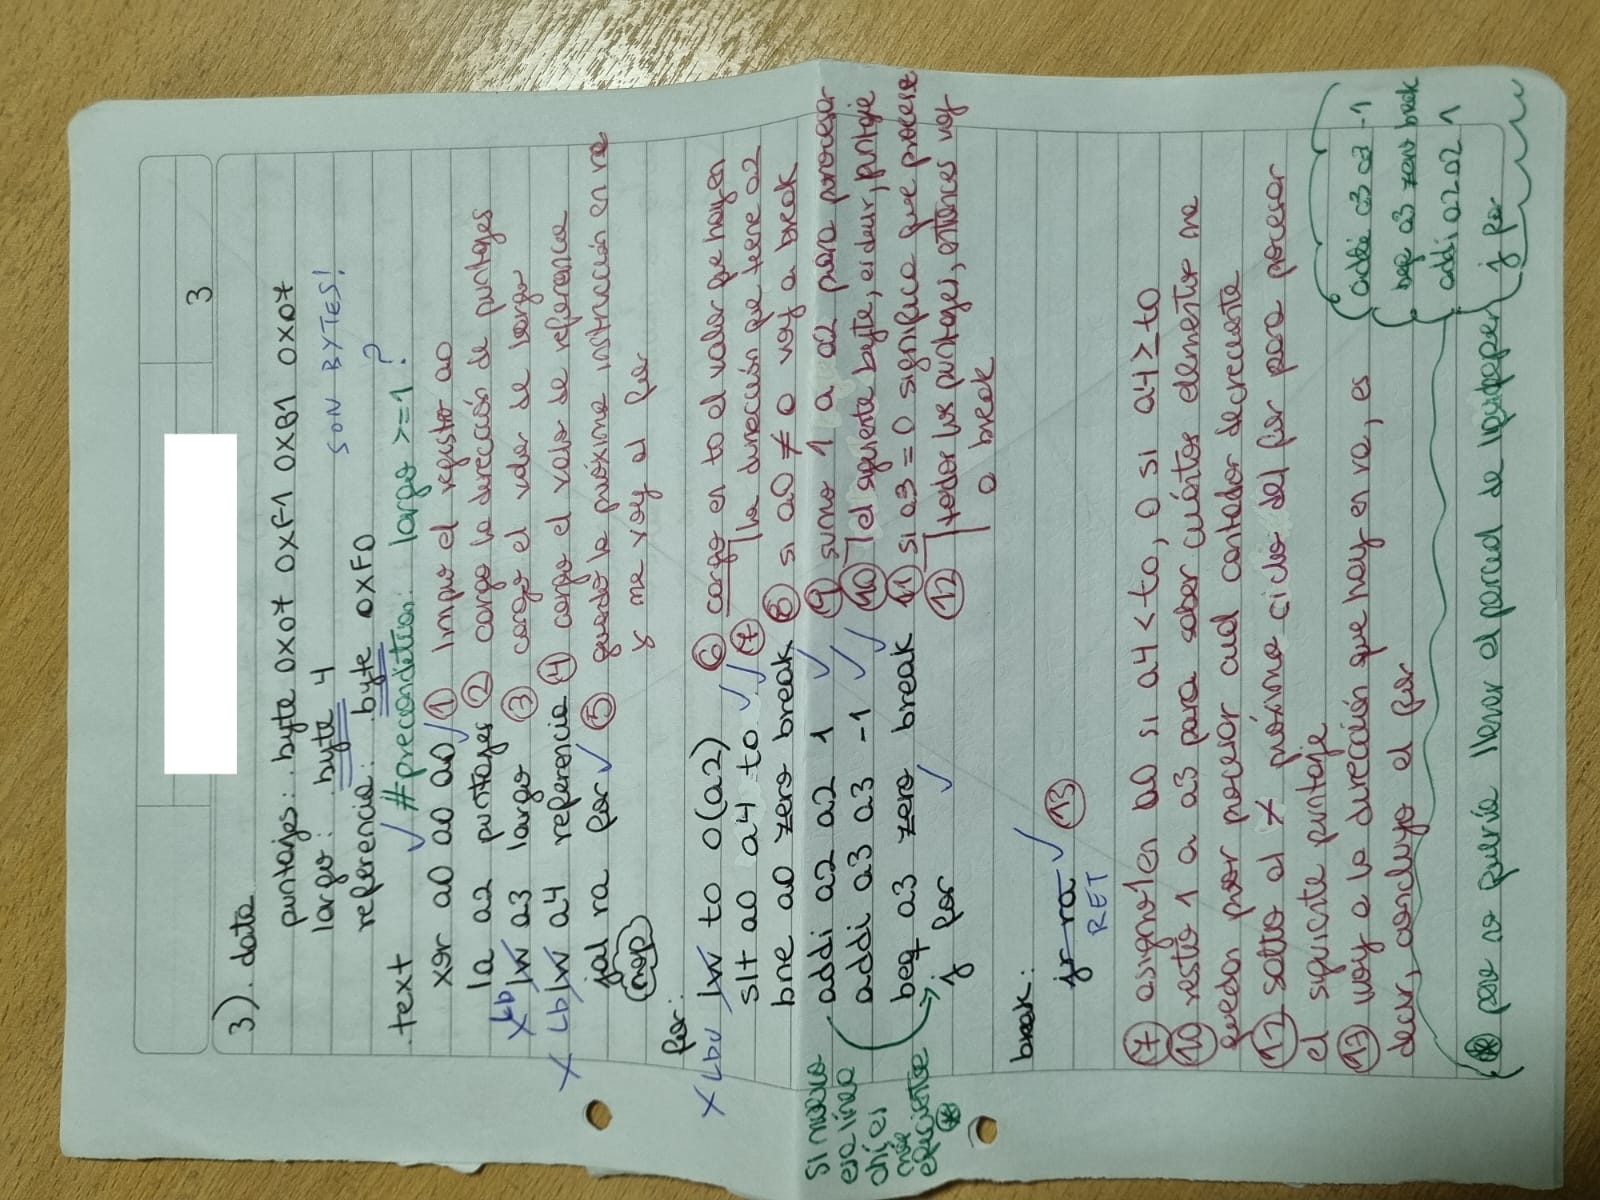 3
3). data
puntajes: .byte 0x07 0xF1 0xB1 0x07
largo: .byte 4
SON BYTES!
referencia: .byte 0xF0
.text ✓ #precondition: largo >=1 ?
xor a0 a0 a0 ✓ ① limpio el registro a0
la a2 puntajes ② cargo la dirección de puntajes
X Lb lw a3 largo ③ cargo el valor de largo
X Lb lw a4 referencia ④ cargo el valor de referencia
jal ra for ✓ ⑤ guardo la próxima instrucción en ra
nop y me voy al for
for:
X Lbu lw t0 0(a2) ⑥ cargo en t0 el valor que hay en
slt a0 a4 t0 ✓ ✓ ⑦ la dirección que tiene a2
bne a0 zero break ⑧ si a0 ≠ 0 voy a break
addi a2 a2 1 ✓ ⑨ sumo 1 a a2 para procesar
addi a3 a3 -1 ✓ ✓ ⑩ el siguiente byte, es decir, puntaje
beq a3 zero break ⑪ si a3 = 0 significa que procesé
j for ✓ ⑫ todos los puntajes, entonces voy
a break
si
esa línea
ahí es
más
eficiente
⊛
break:
jr ra ✓ ⑬
RET
⑦ asigno 1 en a0 si a4 < t0, 0 si a4 ≥ t0
⑩ resto 1 a a3 para saber cuántos elementos me
quedan por procesar cual contador decreciente
⑫ salto al próximo ciclo del for para procesar
el siguiente puntaje
⑬ voy a la dirección que hay en ra, es
decir, concluyo el for
addi a3 a3 -1
beq a3 zero break
addi a2 a2 1
j for
⊛ pero no quería llenar el parcial de liquidpaper